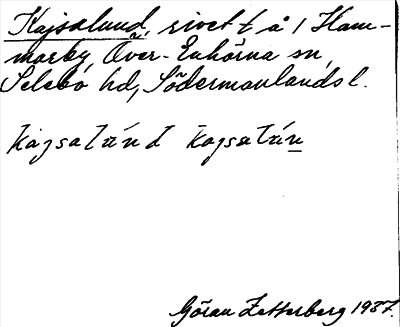 Kajsalund, rivet t å 1 Ham-
marby, Över-Enhörna sn,
Selebo hd, Södermanlands l.
kajsalún̄d kajsalún
Göran Zetterberg 1937.